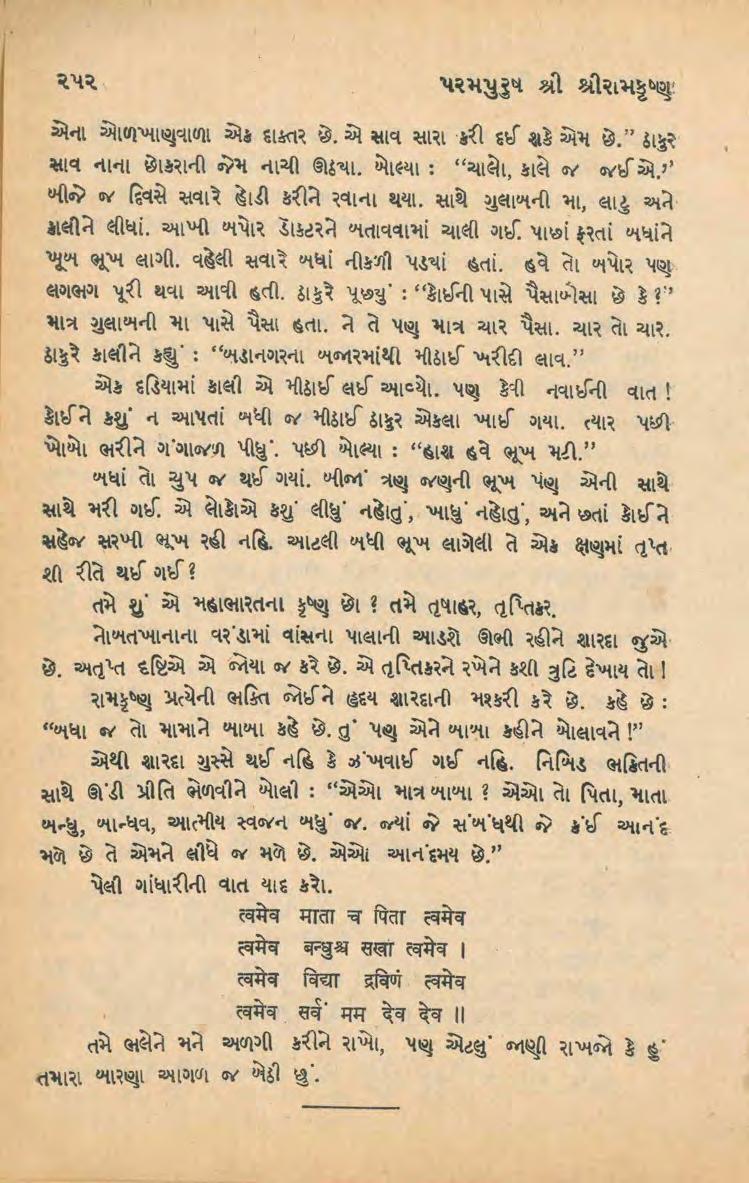 ૨૫૨ પરમપુરુષ શ્રી શ્રીરામકૃષ્ણ
એના ઓળખાણવાળા એક દાક્તર છે. એ સાવ સારા કરી દઈ શકે એમ છે.” ઠાકુર
સાવ નાના છોકરાની જેમ નાચી ઊઠયા. બોલ્યા : “ચાલો, કાલે જ જઈએ.”
બીજે જ દિવસે સવારે હોડી કરીને રવાના થયા. સાથે ગુલાબની મા, લાટુ અને
કાલીને લીધાં. આખી બપોર ડૉક્ટરને બતાવવામાં ચાલી ગઈ. પાછાં ફરતાં બધાંને
ખૂબ ભૂખ લાગી. વહેલી સવારે બધાં નીકળી પડયાં હતાં. હવે તો બપોર પણ
લગભગ પૂરી થવા આવી હતી. ઠાકુરે પૂછયું : “કોઈની પાસે પૈસાબૈસા છે કે ?”
માત્ર ગુલાબની મા પાસે પૈસા હતા. ને તે પણ માત્ર ચાર પૈસા. ચાર તો ચાર.
ઠાકુરે કાલીને કહ્યું : “બડાનગરના બજારમાંથી મીઠાઈ ખરીદી લાવ.”
એક દડિયામાં કાલી એ મીઠાઈ લઈ આવ્યો. પણ કેવી નવાઈની વાત !
કોઈને કશું ન આપતાં બધી જ મીઠાઈ ઠાકુર એકલા ખાઈ ગયા. ત્યાર પછી
ખોબો ભરીને ગંગાજળ પીધું. પછી બોલ્યા : “હાશ હવે ભૂખ મટી.”
બધાં તો ચુપ જ થઈ ગયાં. બીજાં ત્રણ જણની ભૂખ પણ એની સાથે
સાથે મરી ગઈ. એ લોકોએ કશું લીધું નહોતું, ખાધું નહોતું, અને છતાં કોઈને
સહેજ સરખી ભૂખ રહી નહિ. આટલી બધી ભૂખ લાગેલી તે એક ક્ષણમાં તૃપ્ત
શી રીતે થઈ ગઈ ?
તમે શું એ મહાભારતના કૃષ્ણ છો ? તમે તૃષાહર, તૃપ્તિકર.
નોબતખાનાના વરંડામાં વાંસના પાલાની આડશે ઊભી રહીને શારદા જુએ
છે. અતૃપ્ત દષ્ટિએ એ જોયા જ કરે છે. એ તૃપ્તિકરને રખેને કશી ત્રુટિ દેખાય તો !
રામકૃષ્ણ પ્રત્યેની ભક્તિ જોઈને હૃદય શારદાની મશ્કરી કરે છે. કહે છે :
“બધા જ તો મામાને બાબા કહે છે. તું પણ એને બાબા કહીને બોલાવને !”
એથી શારદા ગુસ્સે થઈ નહિ કે ઝંખવાઈ ગઈ નહિ. નિબિડ ભક્તિની
સાથે ઊંડી પ્રીતિ ભેળવીને બોલી : “એઓ માત્ર બાબા ? એઓ તો પિતા, માતા
બન્ધુ, બાન્ધવ, આત્મીય સ્વજન બધું જ. જ્યાં જે સંબંધથી જે કંઈ આનંદ
મળે છે તે એમને લીધે જ મળે છે. એઓ આનંદમય છે.”
પેલી ગાંધારીની વાત યાદ કરો.
त्वमेव माता च पिता त्वमेव
त्वमेव बन्धुश्च सखा त्वमेव ।
त्वमेव विद्या द्रविणं त्वमेव
त्वमेव सर्वं मम देव देव ॥
તમે ભલેને મને અળગી કરીને રાખો, પણ એટલું જાણી રાખજો કે હું
તમારા બારણા આગળ જ બેઠી છું.